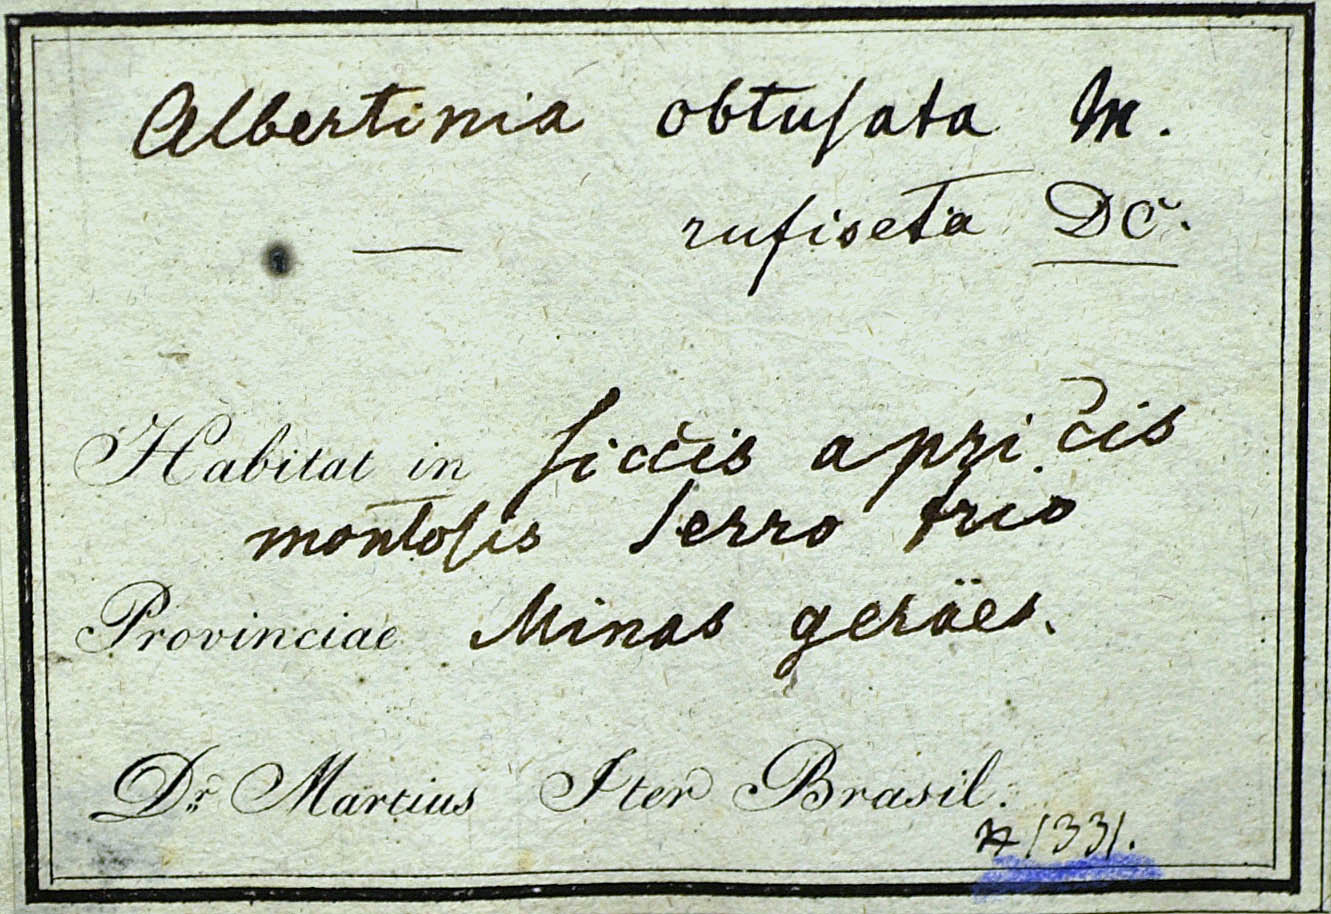 Albertinia obtuſata M.
— rufiseta DC.
Habitat in ſiccis apricis
montoſis Serro frio
Provinciae Minas geräes.
Dr. Martius Iter Brasil.
n 1331.